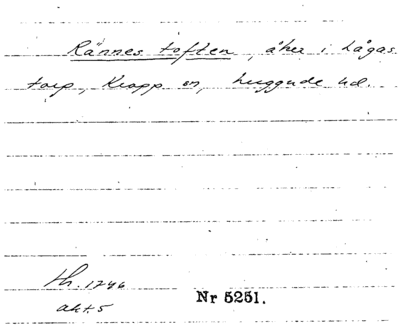 Rännes toften, åker i Lågas
torp, Kropp sn, Luggude hd.
Lh. 1746
akt. 5
Nr 5251.